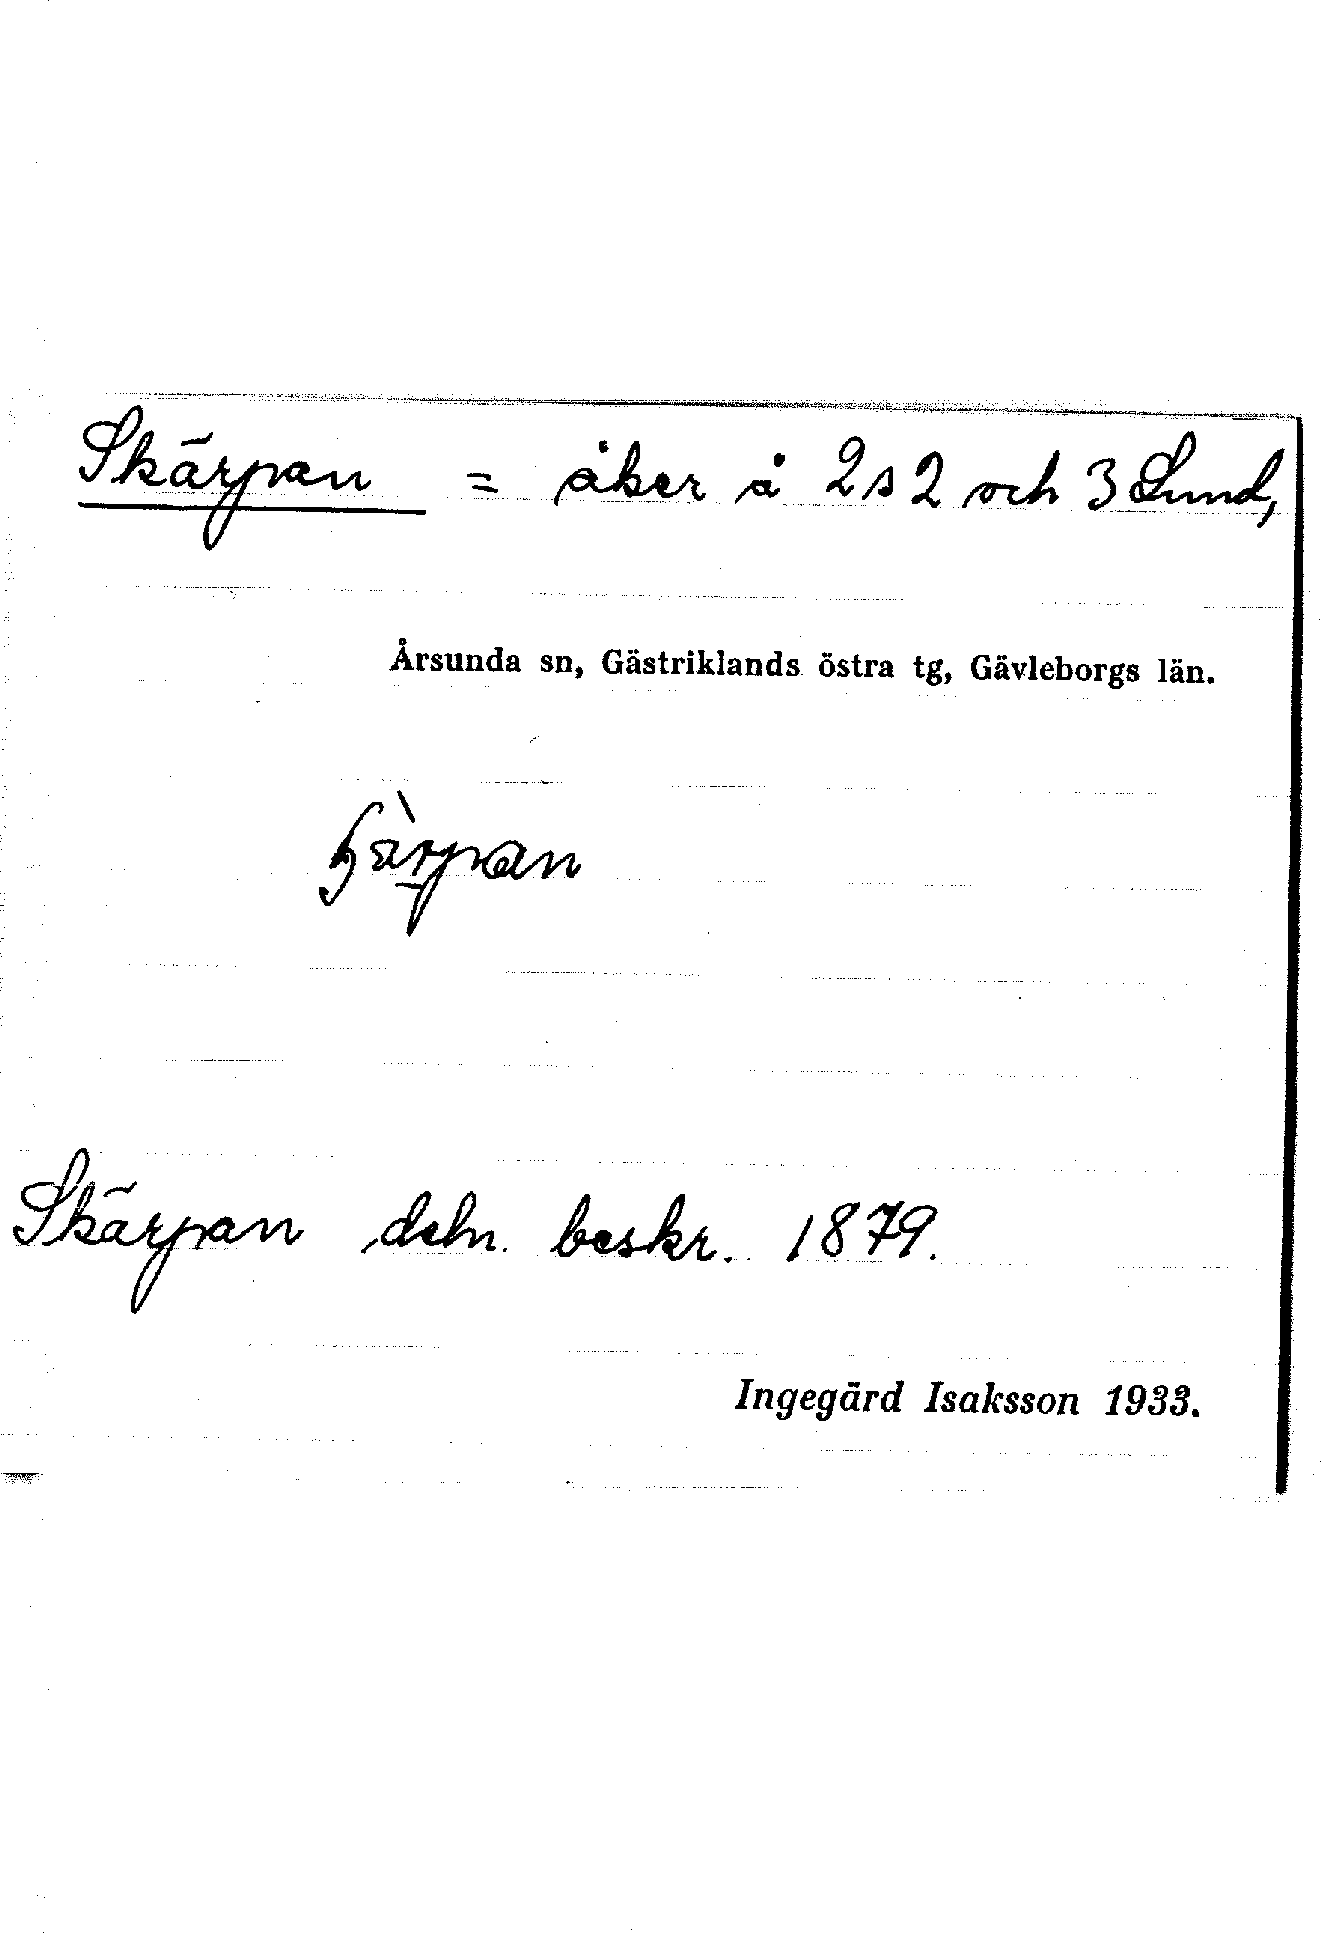 Skärpan = åker å 2 s 2 och 3 Lund,
Årsunda sn, Gästriklands östra tg, Gävleborgs län.
Skärpan deln. beskr. 1879.
Ingegärd Isaksson 1933.